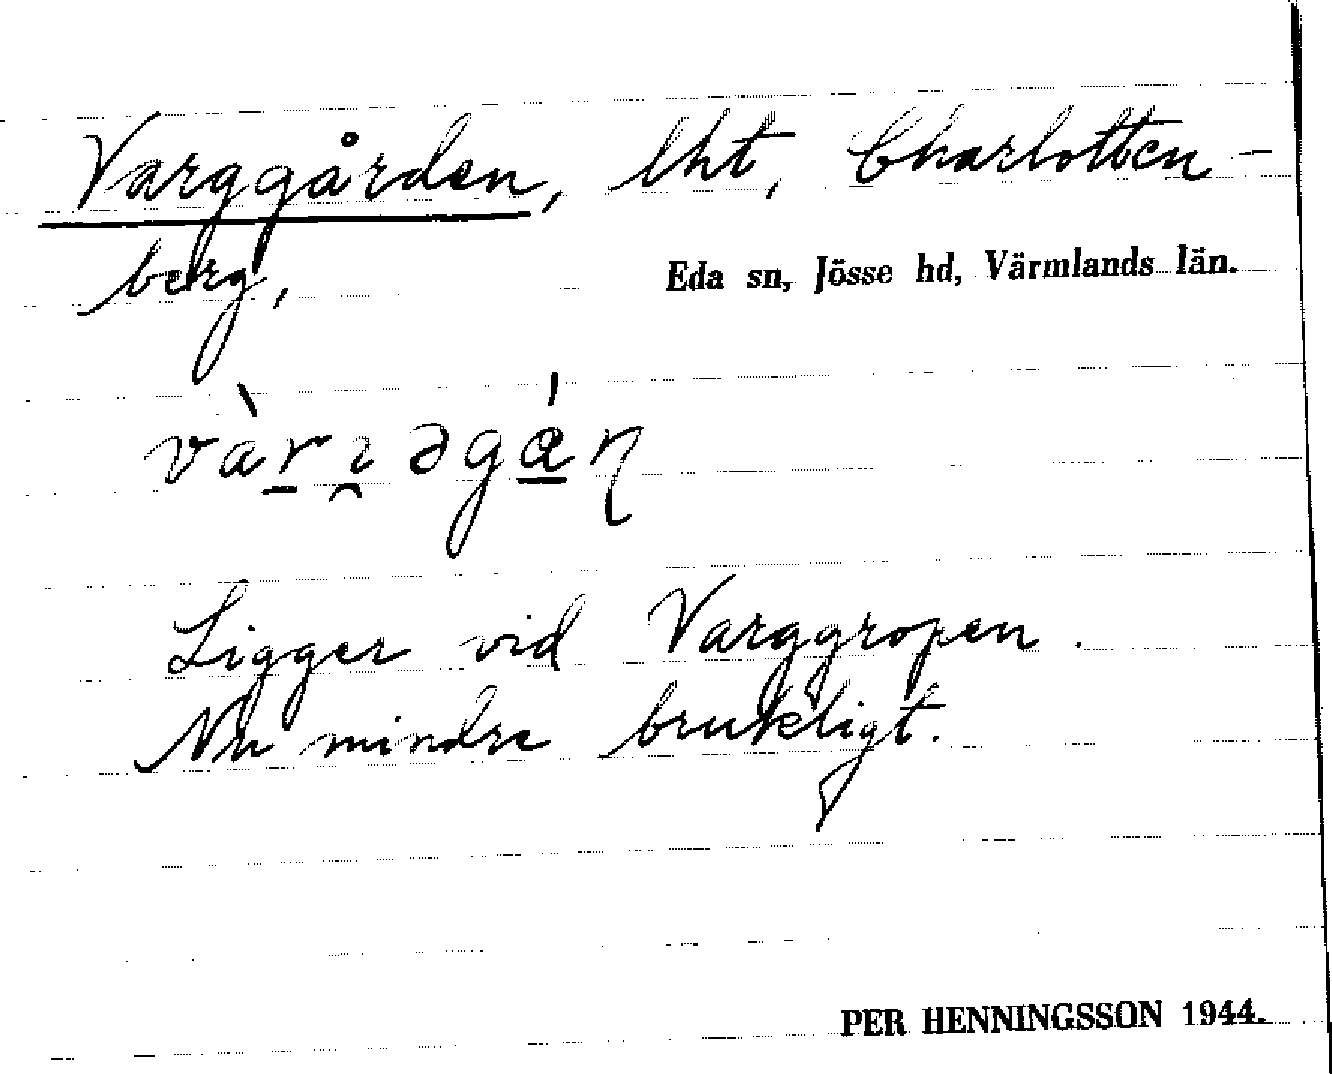 Varggården, lht, Charlotten-
berg,
Eda sn, Jösse hd, Värmlands län.
Ligger vid Varggropen.
Nu mindre brukligt.
PER HENNINGSSON 1944.